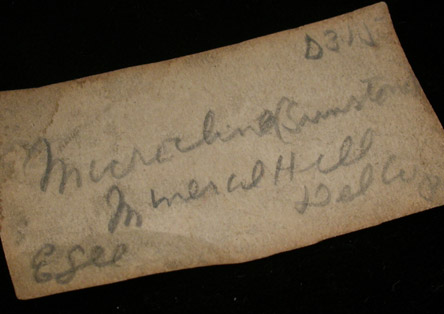 D315
Microcline Sunstone
Mineral Hill
Del Co